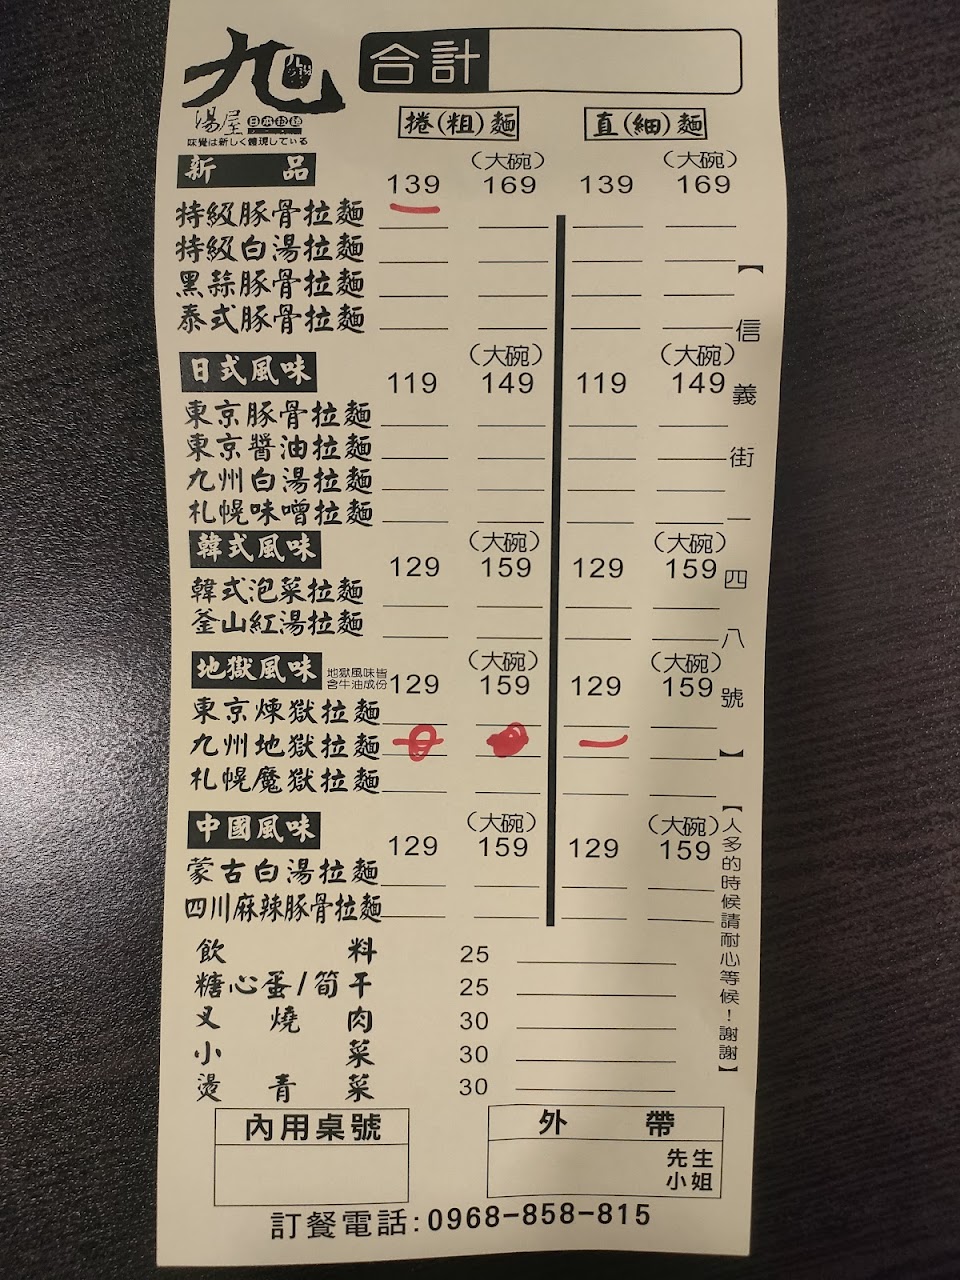 九 九湯屋 合計
湯屋 日本拉麵
味覺は新しく體現している
捲(粗)麵 直(細)麵
新品 (大碗) (大碗)
139 169 139 169
特級豚骨拉麵
特級白湯拉麵
黑蒜豚骨拉麵
泰式豚骨拉麵
日式風味 (大碗) (大碗)
119 149 119 149
東京豚骨拉麵
東京醬油拉麵
九州白湯拉麵
札幌味噌拉麵
韓式風味 (大碗) (大碗)
129 159 129 159
韓式泡菜拉麵
釜山紅湯拉麵
地獄風味 地獄風味皆 (大碗) (大碗)
含牛油成份 129 159 129 159
東京煉獄拉麵
九州地獄拉麵
札幌魔獄拉麵
中國風味 (大碗) (大碗)
129 159 129 159
蒙古白湯拉麵
四川麻辣豚骨拉麵
飲料 25
糖心蛋/筍干 25
叉燒肉 30
小菜 30
燙青菜 30
【信義街一四八號】
【人多的時候請耐心等候!謝謝】
內用桌號 外帶
先生
小姐
訂餐電話:0968-858-815